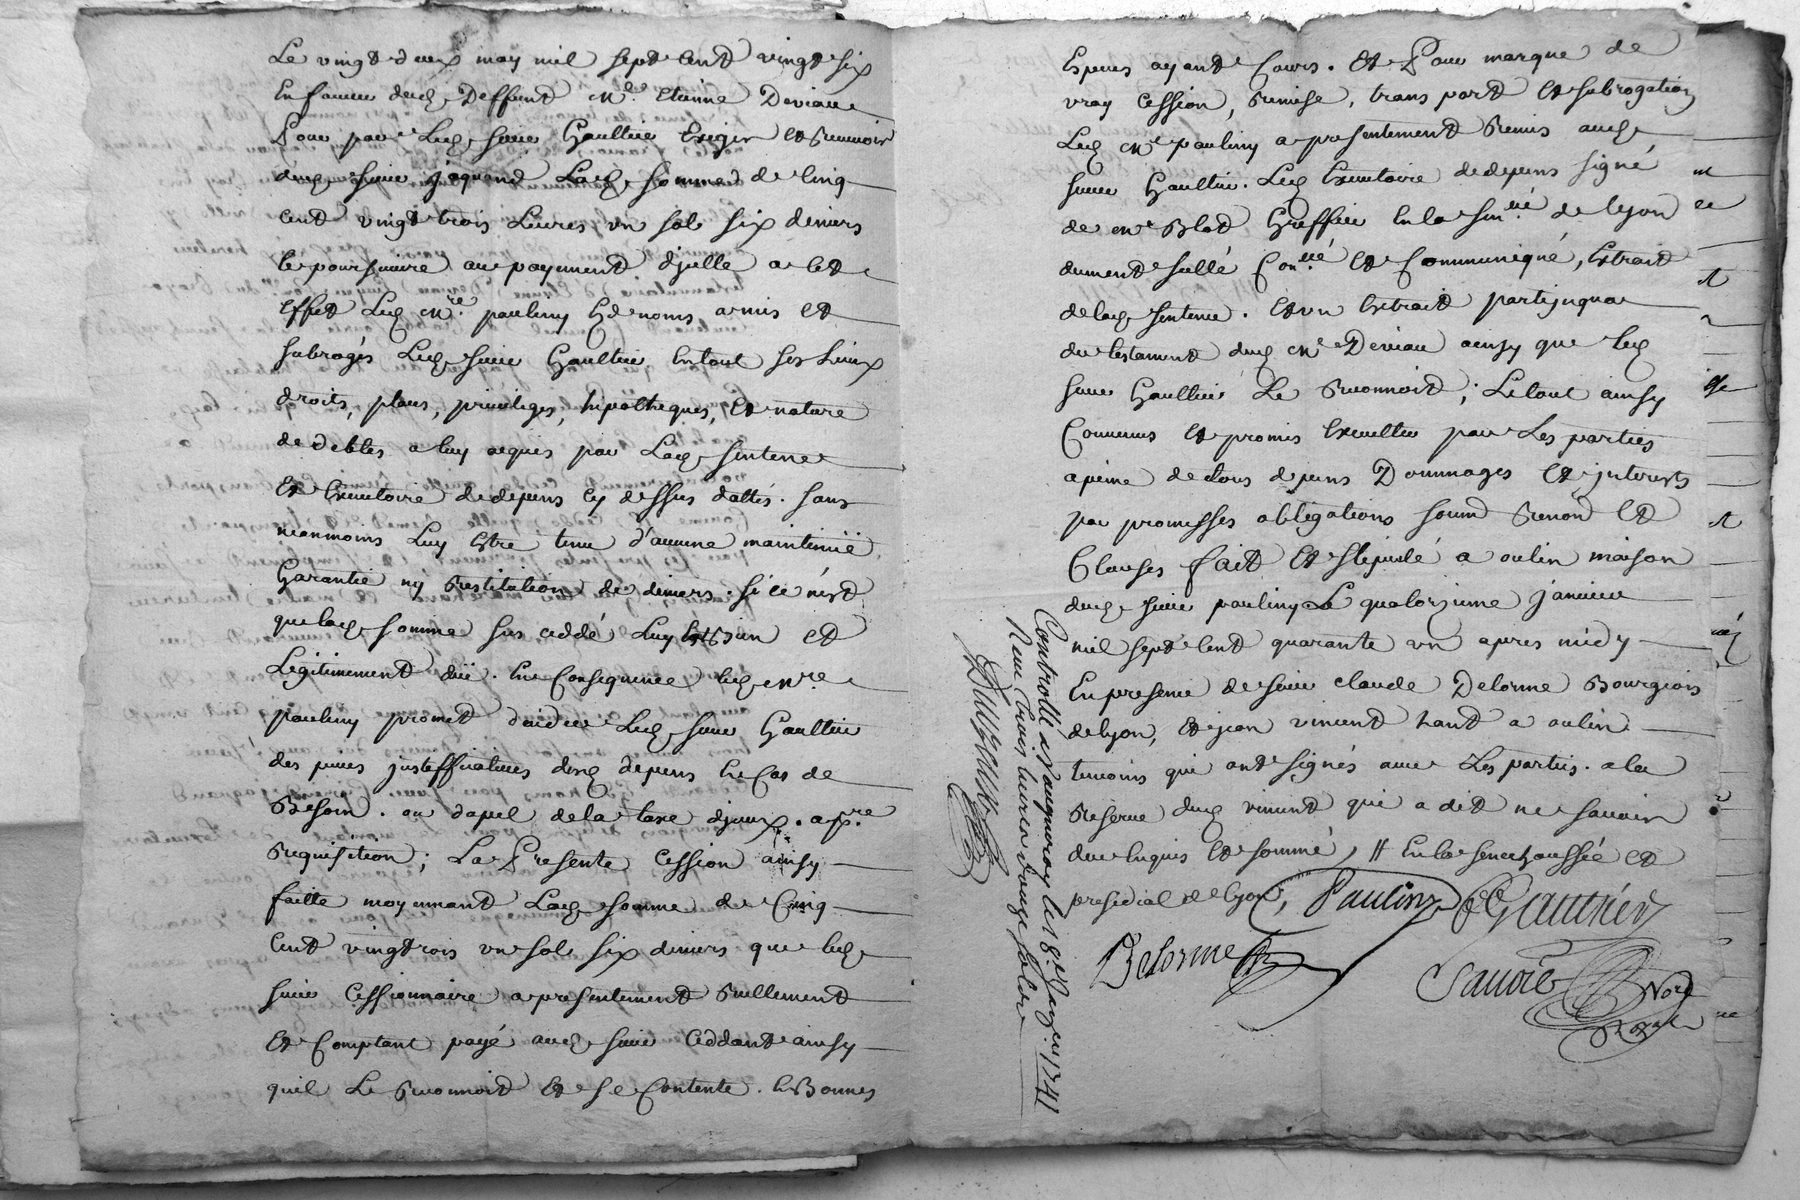 Le vingt deux may mil sept cent vingt six
En faveur dud. Deffunt Mre. Etienne Deviau
Pour par Led. sieur Gaultier Exiger et recevoir
dud. sieur jaquand Lad. somme de Cinq
cent vingt trois Livres un sol six deniers
le poursuivre au payement djcelle a cet
Effet Led. Mre. pauliny Esd. noms a mis et
subrogés Led. sieur Gaultier En tout ses Lieux
droits, places, privileges, hipotheques, Et nature
de debtes a luy acquis par Lad. sentence
Et Executoire de depens cy dessus dattés. sans
neanmoins Luy Estre tenu d'aucune maintenüe,
Garantie ny restitution de deniers. si ce n'est
que lad. somme sus ceddé Luy Est bien et
Legitimement düe. En Consequence led. Mre.
pauliny promet d'aider Led. sieur Gaultier
des pieces justifficatives desd. depens En Cas de
Besoin. ou d'apel de la taxe djceux. a pre.
requisition; La Presente Cession ainsy
faitte moyennant Lad. somme de Cinq
Cent vingt trois un sol six deniers que led.
sieur Cessionnaire a presentement reellement
Et Comptant payé aud. sieur Ceddant ainsy
quil Le reconnoit Et se Contente. En Bonnes
Especes ayant Cours. Et Pour marque de
vray Cession, remise, transport et subrogation
Led. Mre pauliny a presentement remis aud.
sieur Gaultier. Led. Executoire de depens signé
de Mre Blot Greffier En la senée. de Lyon
dument sellé Conllé Et Communiqué, Extrait
de lad. sentence. Et un Extrait partijnqua
du testament dud. Mre Deviau ainsy que led.
sieur Gaultier Le reconnoit; Le tout ainsy
Convenus Et promis Executter par Les parties
a peine de tous depens Dommages Et jnterests
par promesses obligations soum renon Et
Clauses fait Et stipulé a oulin maison
dud. sieur pauliny Le quatorzieme janvier
mil sept cent quarante un apres midy
En presence de sieur claude Delorme Bourgeois
de Lyon, Et jean vincent hant a oulin
temoins qui ont signés avec Les parties. a la
reserve dud. vincent qui a dit ne scavoir
de ce Enquis Et sommé, # En la senechaussée et
presidial de Lyon, Pauliny Gaultier
Delorme
Savoie Nore
Royal
Controllé a vaugneray le 18e. Janer. 1741
Receu trois livres douze sols